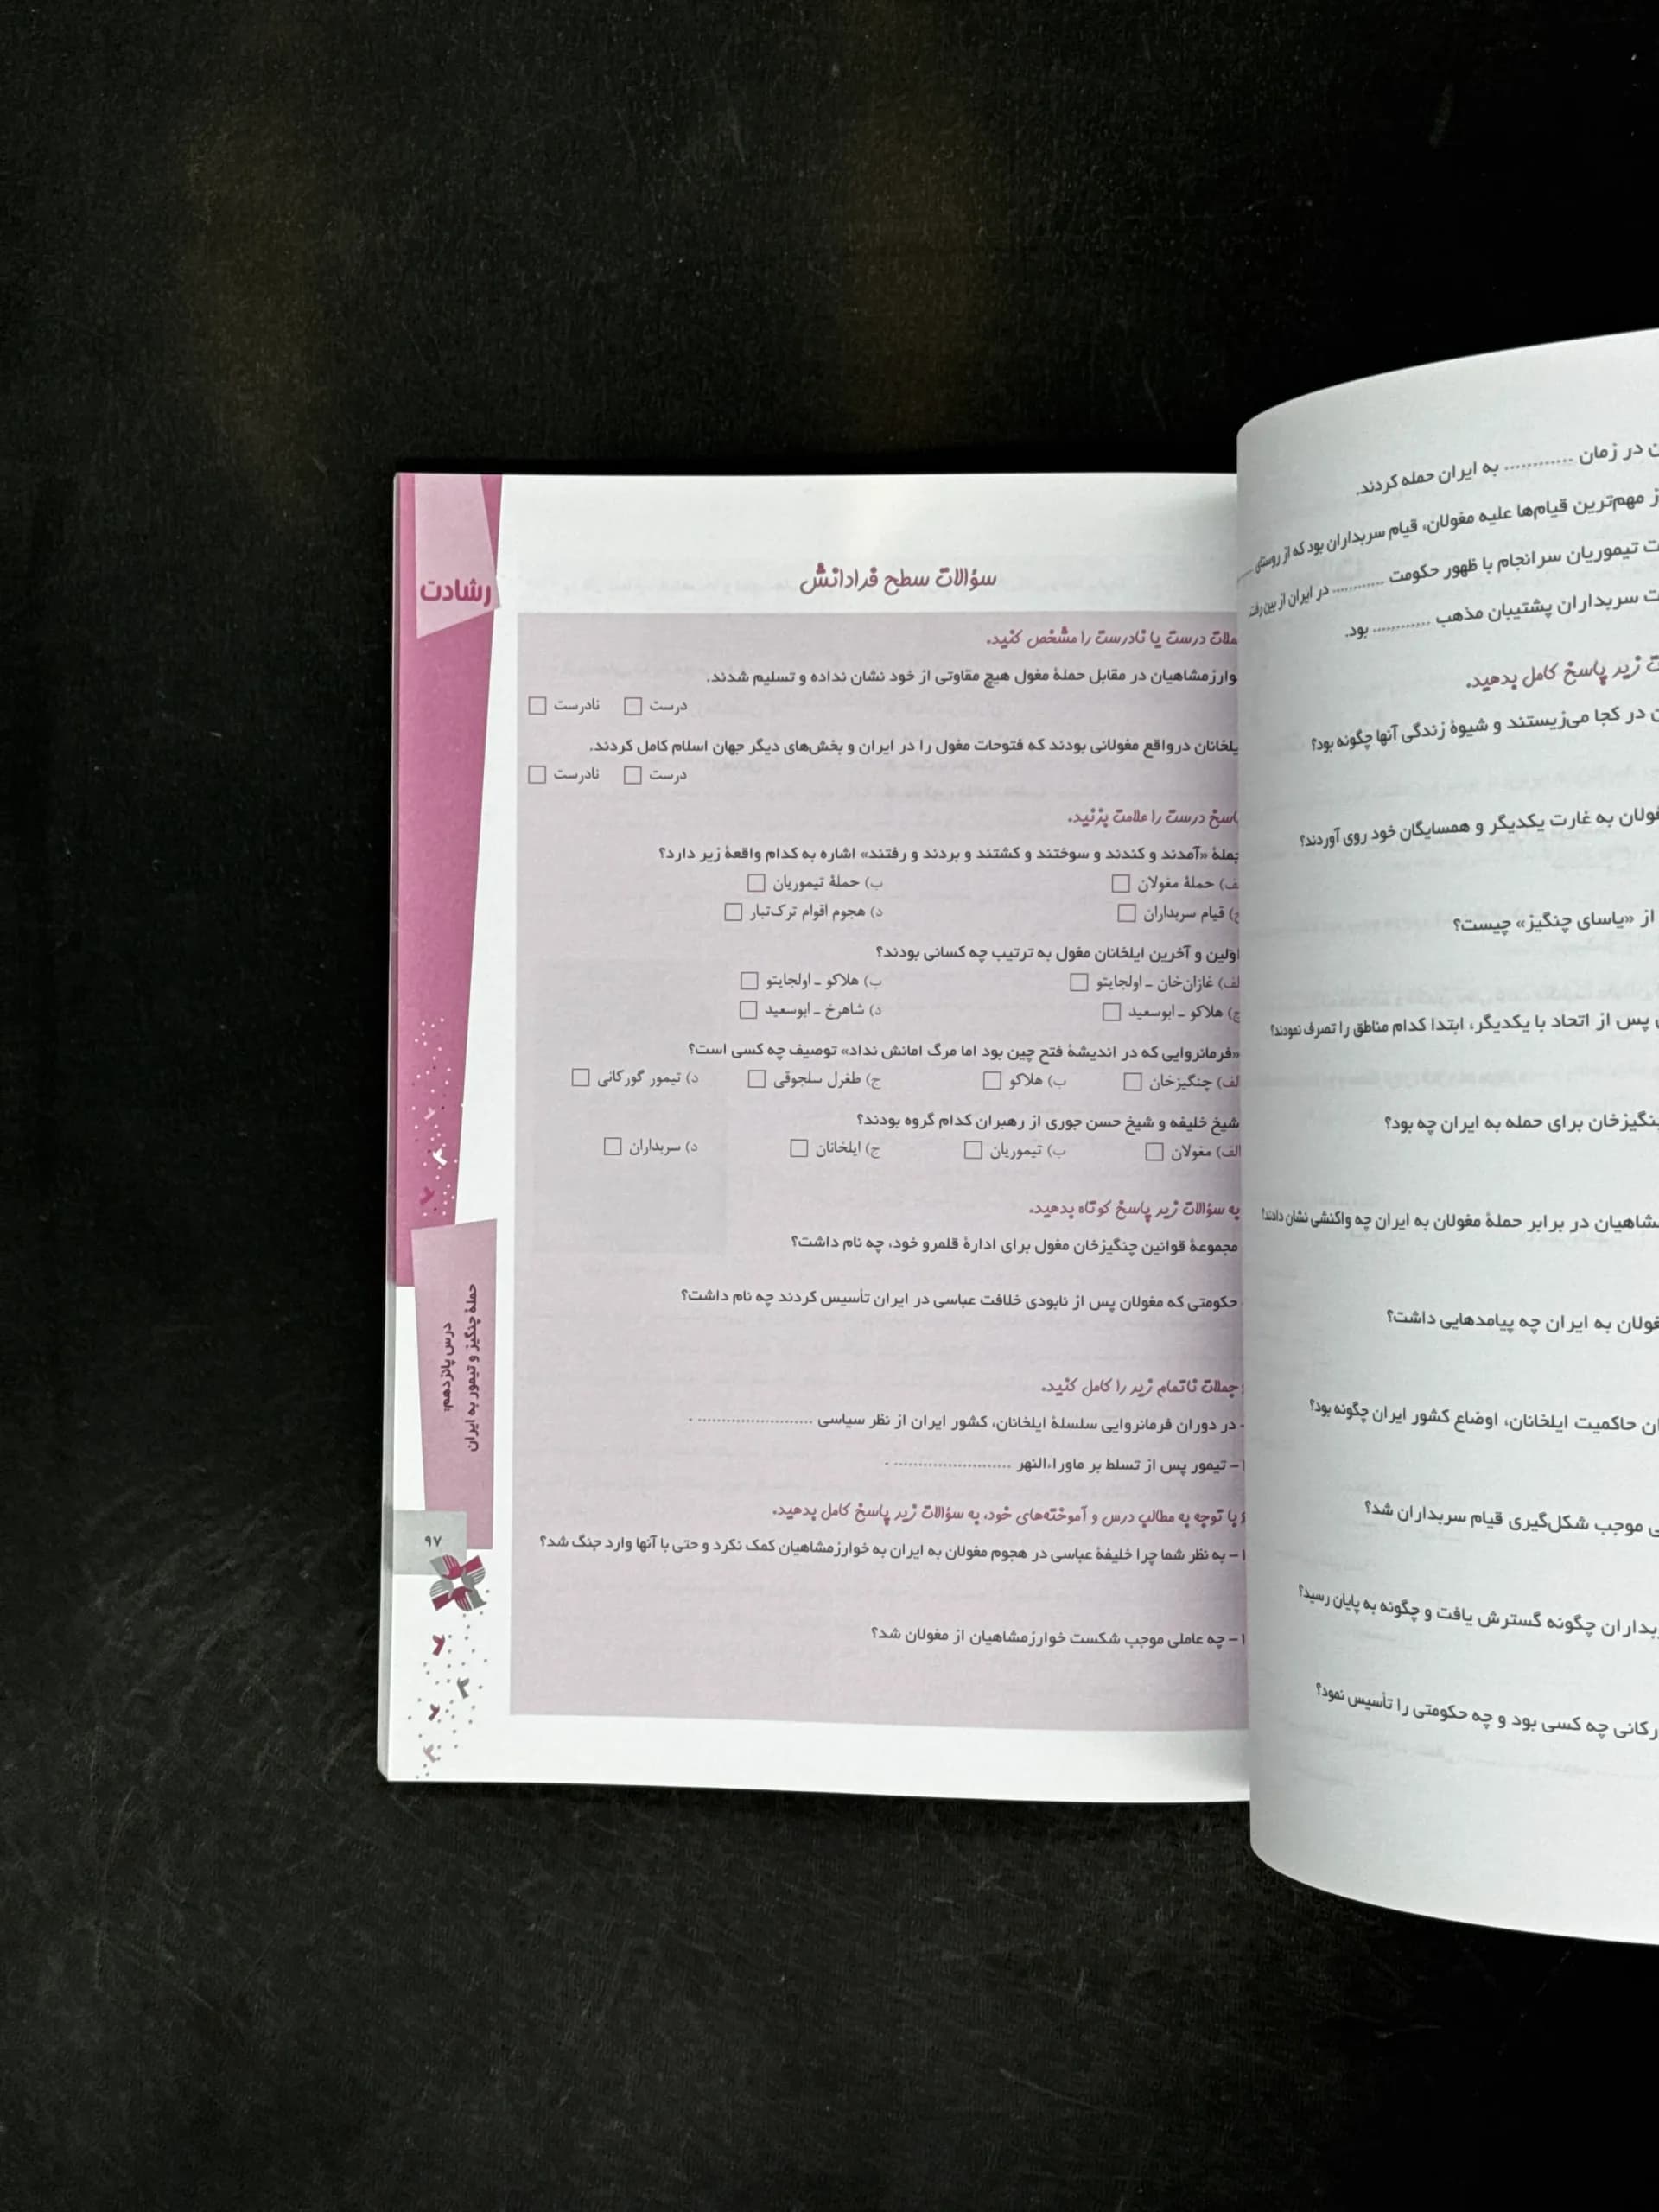 در زمان ............ به ایران حمله کردند.
مهم‌ترین قیام‌ها علیه مغولان، قیام سربداران بود که از روستای
تیموریان سرانجام با ظهور حکومت ............ در ایران از بین رفت
سربداران پشتیبان مذهب ............ بود.
زیر پاسخ کامل بدهید.
در کجا می‌زیستند و شیوهٔ زندگی آنها چگونه بود؟
به غارت یکدیگر و همسایگان خود روی آوردند؟
از «یاسای چنگیز» چیست؟
پس از اتحاد با یکدیگر، ابتدا کدام مناطق را تصرف نمودند؟
برای حمله به ایران چه بود؟
در برابر حملهٔ مغولان به ایران چه واکنشی نشان دادند؟
به ایران چه پیامدهایی داشت؟
حاکمیت ایلخانان، اوضاع کشور ایران چگونه بود؟
موجب شکل‌گیری قیام سربداران شد؟
چگونه گسترش یافت و چگونه به پایان رسید؟
چه کسی بود و چه حکومتی را تأسیس نمود؟
رشادت
سؤالات سطح فرادانش
درست یا نادرست را مشخص کنید.
در مقابل حملهٔ مغول هیچ مقاوتی از خود نشان نداده و تسلیم شدند.
درست نادرست
درواقع مغولانی بودند که فتوحات مغول را در ایران و بخش‌های دیگر جهان اسلام کامل کردند.
درست نادرست
پاسخ درست را علامت بزنید.
جملهٔ «آمدند و کندند و سوختند و کشتند و بردند و رفتند» اشاره به کدام واقعهٔ زیر دارد؟
الف) حملهٔ مغولان ب) حملهٔ تیموریان
ج) قیام سربداران د) هجوم اقوام ترک‌تبار
اولین و آخرین ایلخانان مغول به ترتیب چه کسانی بودند؟
الف) غازان‌خان ـ اولجایتو ب) هلاکو ـ اولجایتو
ج) هلاکو ـ ابوسعید د) شاهرخ ـ ابوسعید
«فرمانروایی که در اندیشهٔ فتح چین بود اما مرگ امانش نداد» توصیف چه کسی است؟
الف) چنگیزخان ب) هلاکو ج) طغرل سلجوقی د) تیمور گورکانی
شیخ خلیفه و شیخ حسن جوری از رهبران کدام گروه بودند؟
الف) مغولان ب) تیموریان ج) ایلخانان د) سربداران
به سؤالات زیر پاسخ کوتاه بدهید.
مجموعهٔ قوانین چنگیزخان مغول برای ادارهٔ قلمرو خود، چه نام داشت؟
حکومتی که مغولان پس از نابودی خلافت عباسی در ایران تأسیس کردند چه نام داشت؟
جملات ناتمام زیر را کامل کنید.
در دوران فرمانروایی سلسلهٔ ایلخانان، کشور ایران از نظر سیاسی ...................... .
- تیمور پس از تسلط بر ماوراءالنهر ...................... .
با توجه به مطالب درس و آموخته‌های خود، به سؤالات زیر پاسخ کامل بدهید.
۱- به نظر شما چرا خلیفهٔ عباسی در هجوم مغولان به ایران به خوارزمشاهیان کمک نکرد و حتی با آنها وارد جنگ شد؟
- چه عاملی موجب شکست خوارزمشاهیان از مغولان شد؟
درس پانزدهم:
حملهٔ چنگیز و تیمور به ایران
۹۷